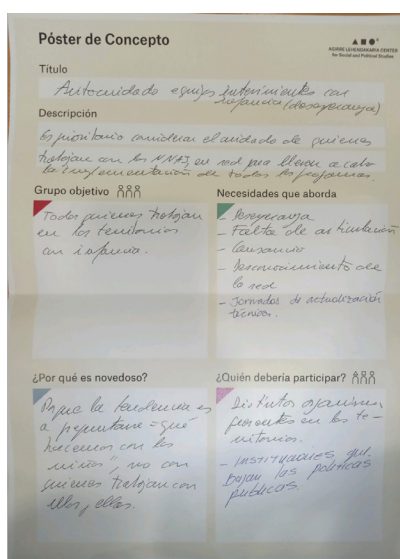 Póster de Concepto
AGIRRE LEHENDAKARIA CENTER
for Social and Political Studies
Título
Autocuidado equipos intervinientes con
infancia (desesperanza)
Descripción
Es prioritario considerar el cuidado de quienes
trabajan con los NNAJ, en red para llevar a cabo
la implementación de todos los programas.
Grupo objetivo
Todos quienes trabajan
en los territorios
con infancia.
Necesidades que aborda
- Desesperanza
- Falta de articulación
- Cansancio
- Desconocimiento de
la red
- Jornadas de actualización
técnicas.
¿Por qué es novedoso?
Porque la tendencia es
a preguntarse "qué
hacemos con los
niños", no con
quienes trabajan con
ellos y ellas.
¿Quién debería participar?
Distintos organismos
presentes en los te-
rritorios.
- Instituciones que
Bajan las políticas
públicas.